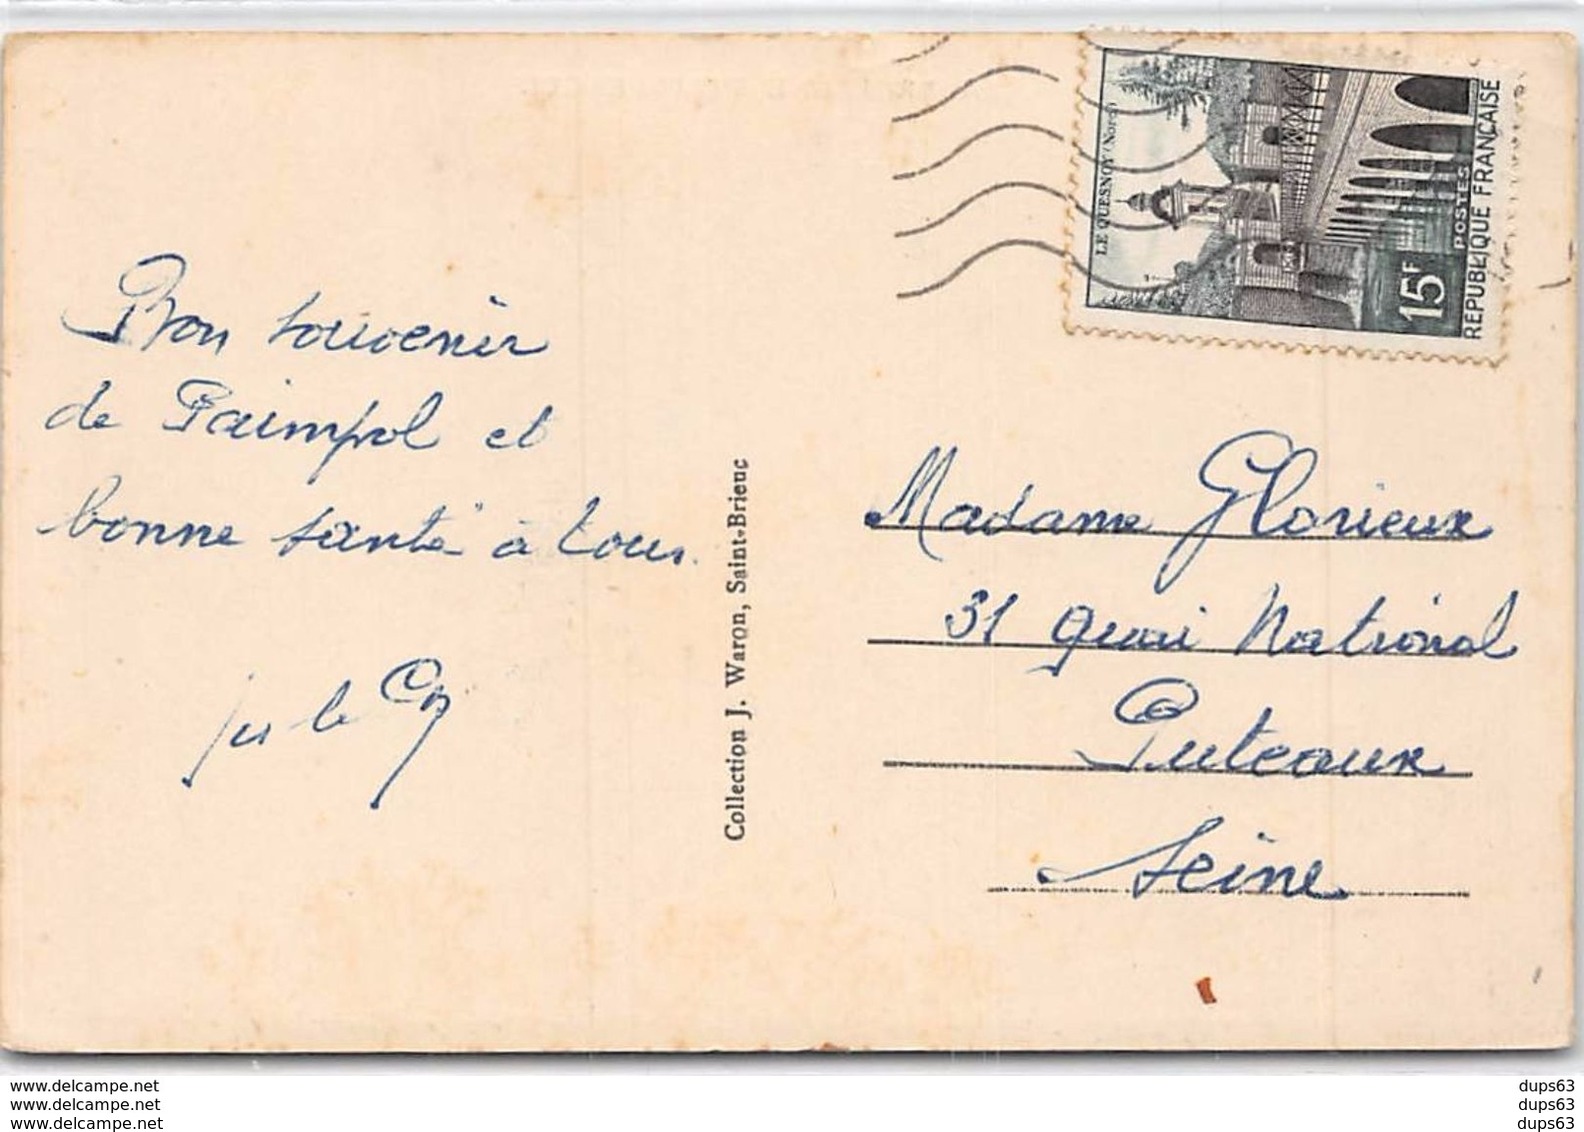 LE QUESNOY (Nord)
15F
POSTES
REPUBLIQUE FRANÇAISE
Bon souvenir
de Paimpol et
bonne santé à tous.
Collection J. Waron, Saint-Brieuc
Madame Glorieux
31 quai National
Puteaux
Seine
www.delcampe.net
www.delcampe.net
www.delcampe.net
dups63
dups63
dups63